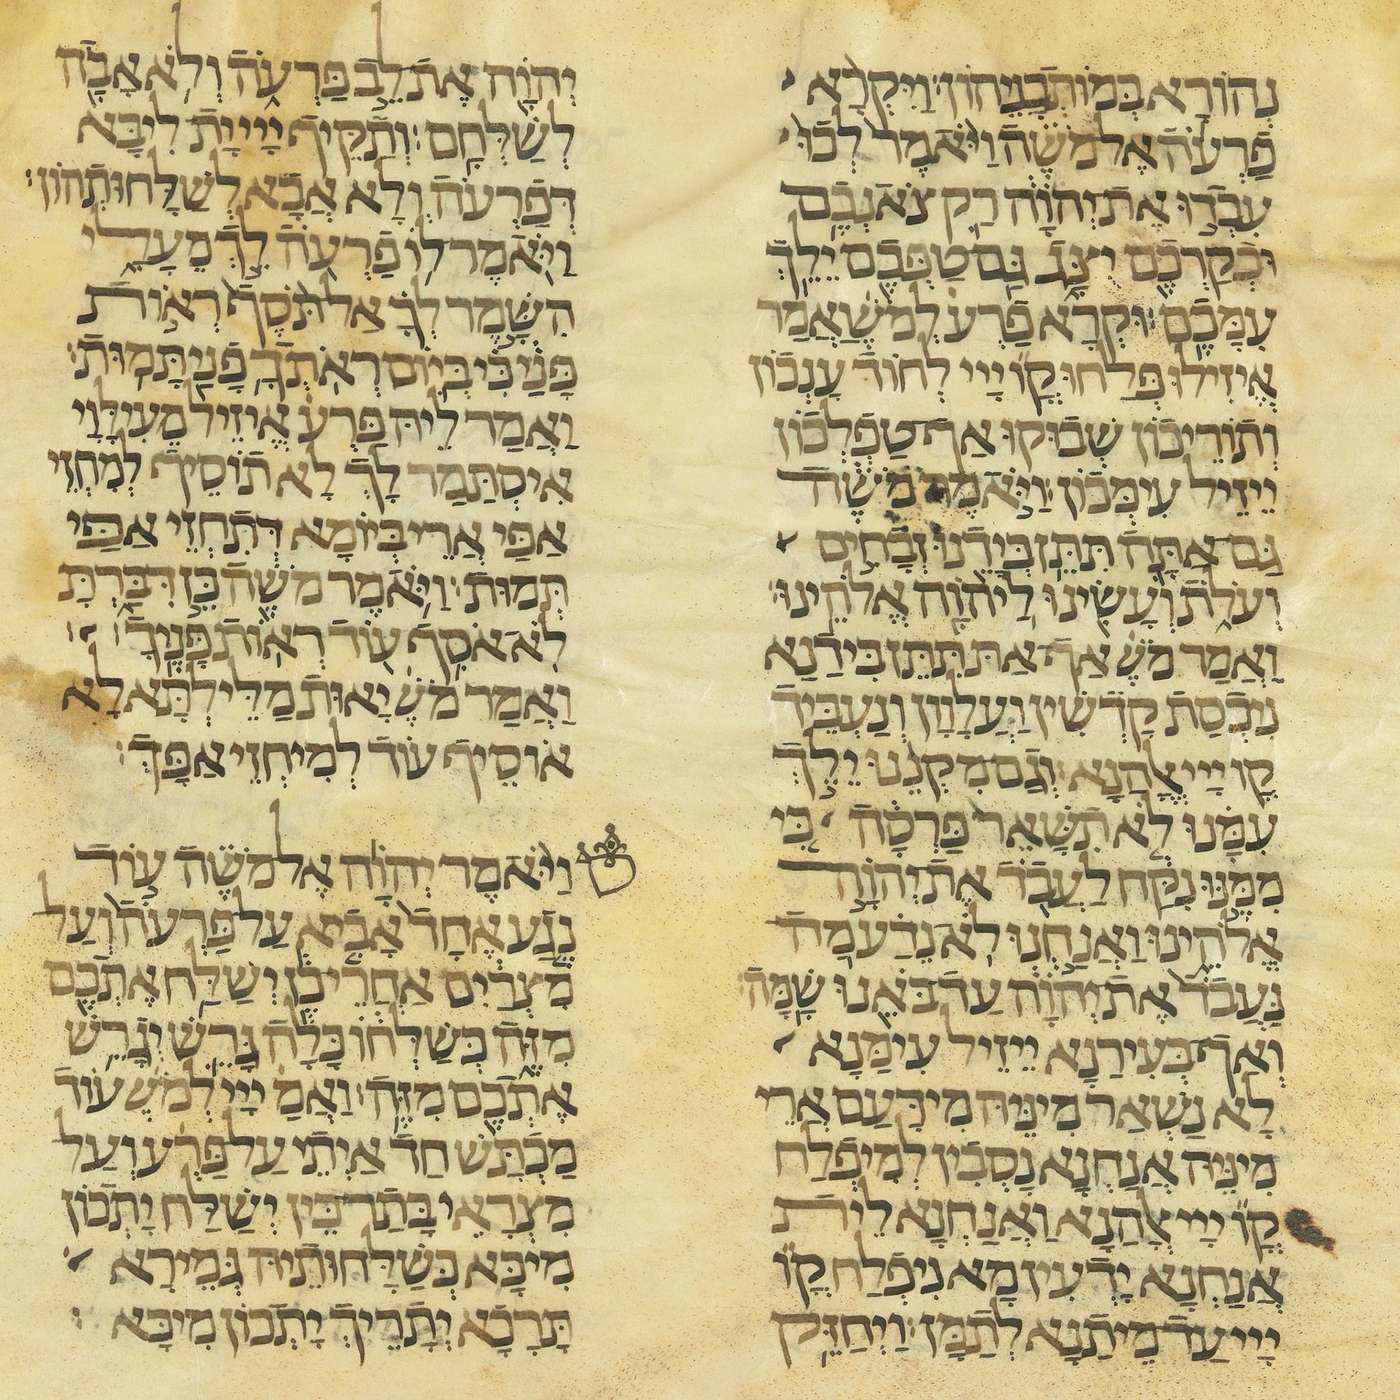 נְהוֹרָא בְּמוֹתְבָנֵיהוֹן׃ וַיִּקְרָא
פַרְעֹה אֶל מֹשֶׁה וַיֹּאמֶר לְכוּ
עִבְדוּ אֶת יְהוָה רַק צֹאנְכֶם
וּבְקַרְכֶם יֻצָּג גַּם טַפְּכֶם יֵלֵךְ
עִמָּכֶם׃ וּקְרָא פַרְעֹ לְמֹשֶׁ וַאֲמַר
אֱזִילוּ פְּלַחוּ קֳ יְיָ לְחוֹד עָנְכוֹן
וְתוֹרֵיכוֹן שְׁבוּקוּ אַף טַפְלְכוֹן
יֵיזֵיל עִימְּכוֹן׃ וַיֹּאמֶר מֹשֶׁה
גַּם אַתָּה תִּתֵּן בְּיָדֵנוּ זְבָחִים
וְעֹלֹת וְעָשִׂינוּ לַיהוָה אֱלֹהֵינוּ׃
וַאֲמַר מֹשֶׁ אַף אַתְּ תִּתֵּן בִּידַנָא
נִכְסַת קֻדְשִׁין וַעֲלָוָון וְנַעְבֵּיד
קֳ יְיָ אֱלָהַנָא׃ וְגַם מִקְנֵנוּ יֵלֵךְ
עִמָּנוּ לֹא תִשָּׁאֵר פַּרְסָה כִּי
מִמֶּנּוּ נִקַּח לַעֲבֹד אֶת יְהוָה
אֱלֹהֵינוּ וַאֲנַחְנוּ לֹא נֵדַע מַה
נַּעֲבֹד אֶת יְהוָה עַד בֹּאֵנוּ שָׁמָּה׃
וְאַף בְּעִירַנָא יֵיזֵיל עִימַּנָא
לָא נַשְׁאַר מִינֵּיהּ מִידָּעַם אֲרֵי
מִינֵּיהּ אֲנַחְנָא נָסְבִין לְמִיפְלַח
קֳ יְיָ אֱלָהַנָא וַאֲנַחְנָא לֵית
אֲנַחְנָא יָדְעִין מָא נִיפְלַח קֳ
יְיָ עַד מֵיתַנָא לְתַמָּן׃ וַיְחַזֵּק
יְהוָה אֶת לֵב פַּרְעֹה וְלֹא אָבָה
לְשַׁלְּחָם׃ וְתַקֵּיף יְיָ יָת לִיבָּא
דְּפַרְעֹה וְלָא אֲבָא לְשַׁלָּחוּתְהוֹן׃
וַיֹּאמֶר לוֹ פַרְעֹה לֵךְ מֵעָלָי
הִשָּׁמֶר לְךָ אַל תֹּסֶף רְאוֹת
פָּנַי כִּי בְּיוֹם רְאֹתְךָ פָנַי תָּמוּת׃
וַאֲמַר לֵיהּ פַּרְעֹ אֱיזֵיל מֵעִילָּוַי
אִיסְתַּמַר לָךְ לָא תוֹסֵיף לְמִחְזֵי
אַפַּי אֲרֵי בְּיוֹמָא דְּתִחְזֵי אַפַּי
תְּמוּת׃ וַיֹּאמֶר מֹשֶׁה כֵּן דִּבַּרְתָּ
לֹא אֹסִף עוֹד רְאוֹת פָּנֶיךָ׃
וַאֲמַר מֹשֶׁ יָאוּת מַלֵּילְתָּא לָא
אוֹסֵיף עוֹד לְמִיחְזֵי אַפָּךְ׃
וַיֹּאמֶר יְהוָה אֶל מֹשֶׁה עוֹד
נֶגַע אֶחָד אָבִיא עַל פַּרְעֹה וְעַל
מִצְרַיִם אַחֲרֵי כֵן יְשַׁלַּח אֶתְכֶם
מִזֶּה כְּשַׁלְּחוֹ כָּלָה גָּרֵשׁ יְגָרֵשׁ
אֶתְכֶם מִזֶּה׃ וַאֲמַ יְיָ לְמֹשֶׁ עוֹד
מַכְתָּשׁ חַד אַיְתֵי עַל פַּרְעֹ וְעַל
מִצְרָאֵי בָּתַר כֵּין יְשַׁלַּח יָתְכוֹן
מִיכָּא כְּשַׁלָּחוּתֵיהּ גְּמֵירָא
תָּרָכָא יְתָרֵיךְ יָתְכוֹן מִיכָּא׃